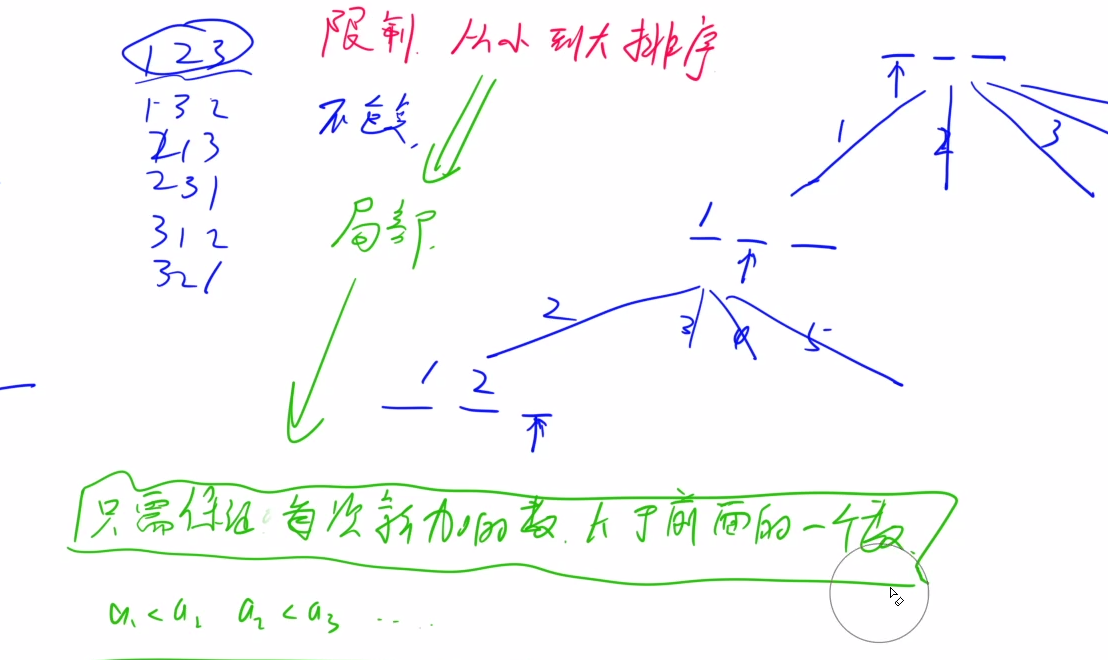 限制 从小到大排序
1 2 3
1 3 2
2 1 3
2 3 1
3 1 2
3 2 1
不包含,
局部.
1 2 3
1
2 3 4 5
1 2
只需保证 每次新加的数. 大于前面的一个数.
a₁ < a₂ a₂ < a₃ ....